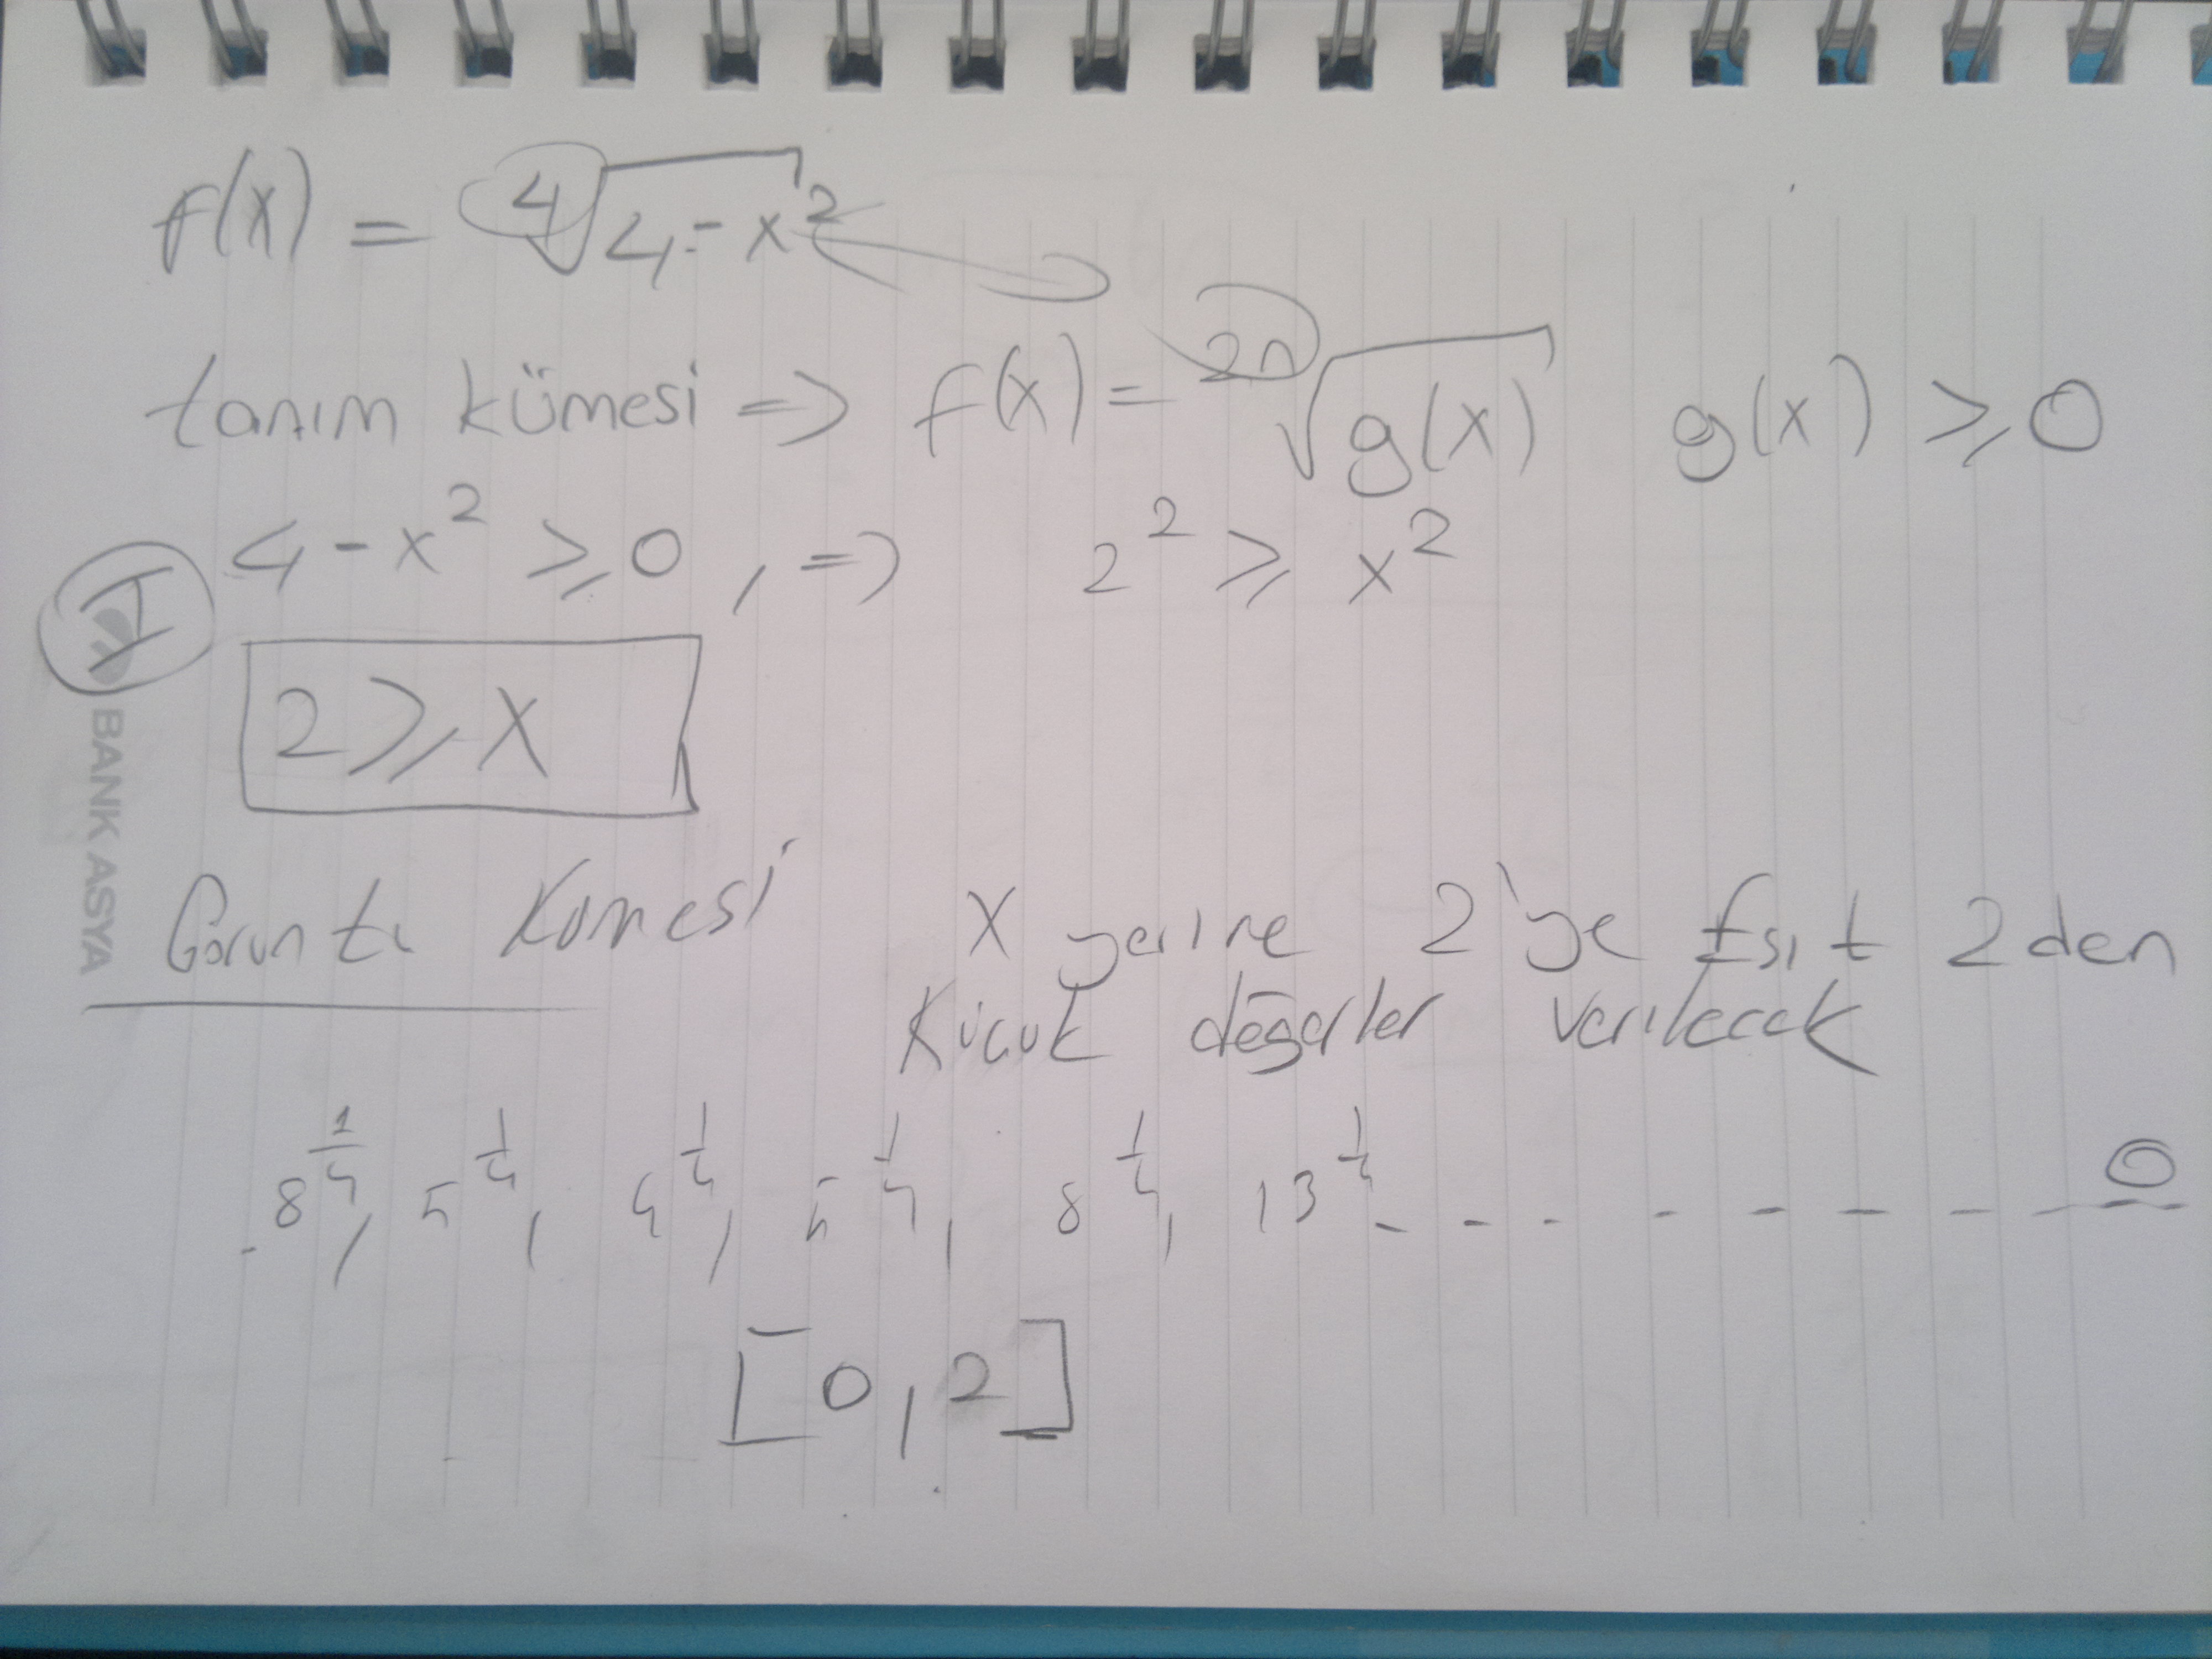 f(x) = ⁴√(4-x²)
tanım kümesi => f(x) = ²ⁿ√g(x) g(x) ≥ 0
I 4-x² ≥ 0, => 2² ≥ x²
2 ≥ x
BANK ASYA
Goruntu Kumesi x yerine 2'ye Eşit 2den
Küçük değerler verilecek
8^1/4, 5^1/4, 4^1/4, 5^1/4, 8^1/4, 13^1/4 - - - - - - - - - 0
[0,2]